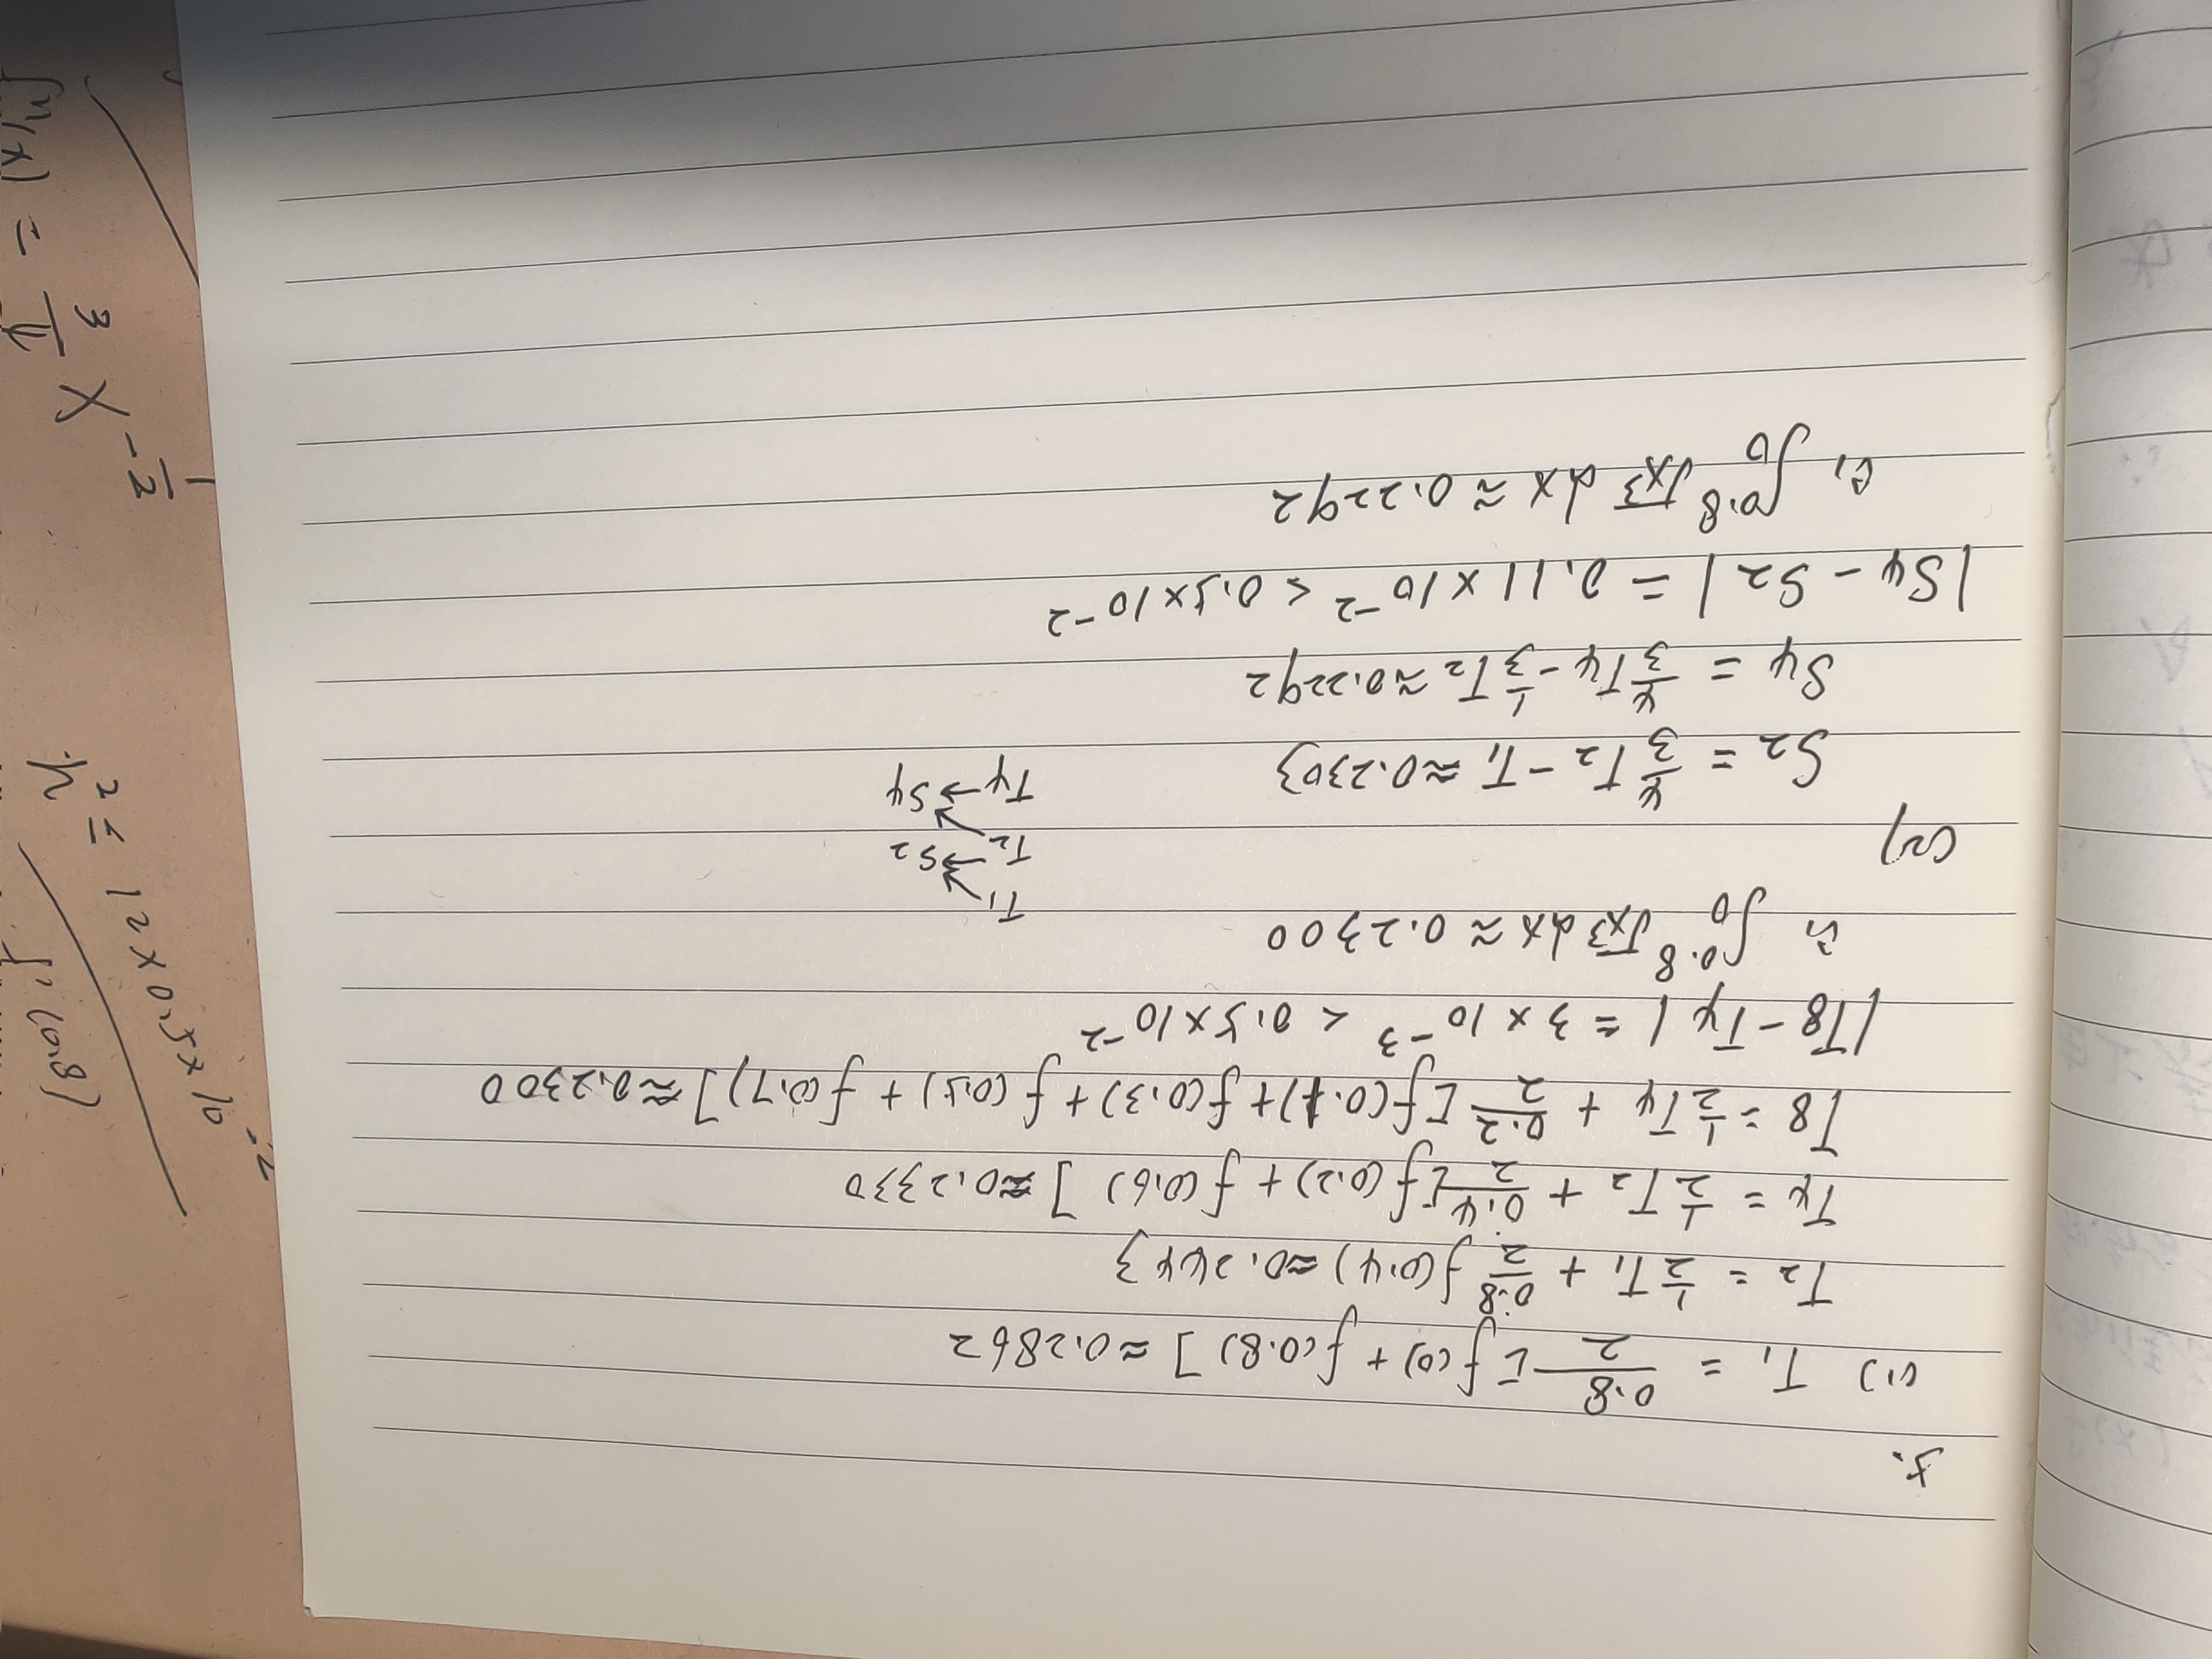 5.
(1) T₁ = 0.8/2 [f(0) + f(0.8)] ≈ 0.2862
T₂ = 1/2 T₁ + 0.8/2 f(0.4) ≈ 0.2443
T₄ = 1/2 T₂ + 0.4/2 [f(0.2) + f(0.6)] ≈ 0.2330
T₈ = 1/2 T₄ + 0.2/2 [f(0.1) + f(0.3) + f(0.5) + f(0.7)] ≈ 0.2300
|T₈ - T₄| = 3 × 10⁻³ < 0.5 × 10⁻²
∴ ∫₀^0.8 √x³ dx ≈ 0.2300
(2)
T₁
T₂ → S₂
T₄ → S₄
S₂ = 4/3 T₂ - T₁ ≈ 0.2303
S₄ = 4/3 T₄ - 1/3 T₂ ≈ 0.2292
|S₄ - S₂| = 0.11 × 10⁻² < 0.5 × 10⁻²
∴ ∫₀^0.8 √x³ dx ≈ 0.2292
h² ≤ 12 × 0.5 × 10⁻²
f''(x) = 3/4 x^-1/2